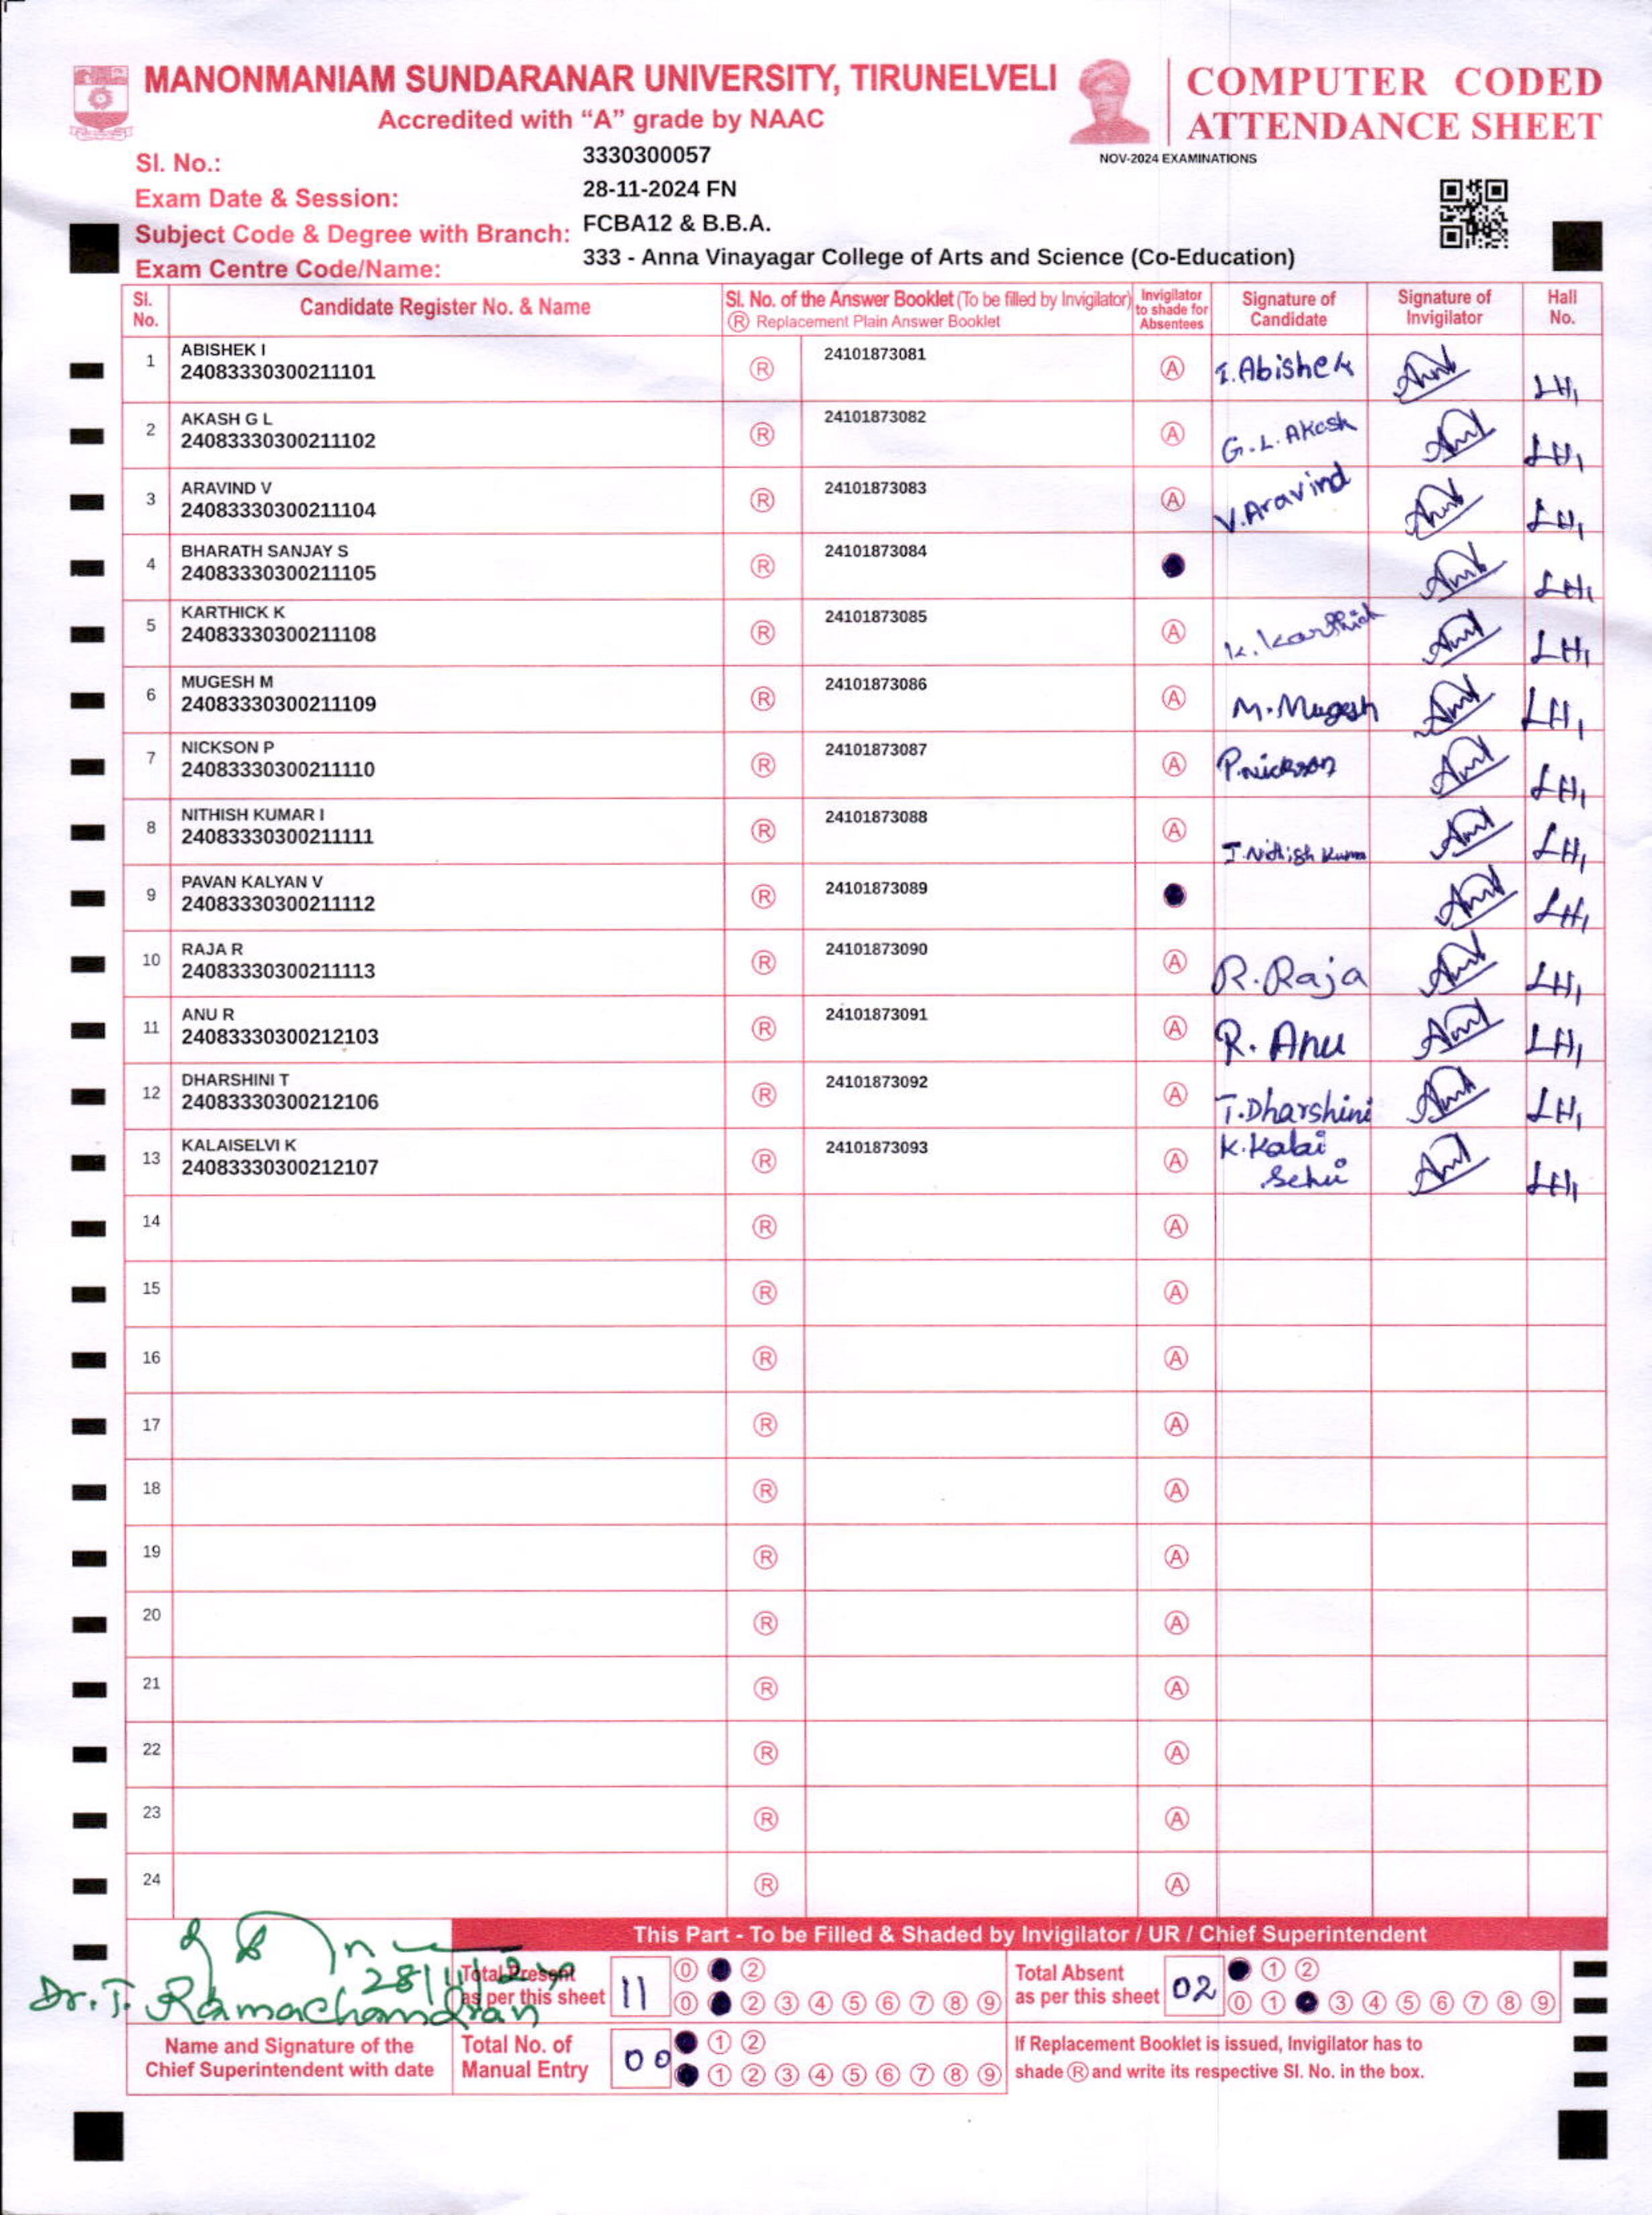 MANONMANIAM SUNDARANAR UNIVERSITY, TIRUNELVELI
Accredited with “A” grade by NAAC
COMPUTER CODED
ATTENDANCE SHEET
NOV-2024 EXAMINATIONS
Sl. No.: 3330300057
Exam Date & Session: 28-11-2024 FN
Subject Code & Degree with Branch: FCBA12 & B.B.A.
Exam Centre Code/Name: 333 - Anna Vinayagar College of Arts and Science (Co-Education)
Sl. No. Candidate Register No. & Name Sl. No. of the Answer Booklet (To be filled by Invigilator) Ⓡ Replacement Plain Answer Booklet Invigilator to shade for Absentees Signature of Candidate Signature of Invigilator Hall No.
1 ABISHEK I 24083330300211101 Ⓡ 24101873081 Ⓐ I.Abishek LH1
2 AKASH G L 24083330300211102 Ⓡ 24101873082 Ⓐ G.L.Akash LH1
3 ARAVIND V 24083330300211104 Ⓡ 24101873083 Ⓐ V.Aravind LH1
4 BHARATH SANJAY S 24083330300211105 Ⓡ 24101873084 LH1
5 KARTHICK K 24083330300211108 Ⓡ 24101873085 Ⓐ K.Karthick LH1
6 MUGESH M 24083330300211109 Ⓡ 24101873086 Ⓐ M.Mugesh LH1
7 NICKSON P 24083330300211110 Ⓡ 24101873087 Ⓐ P.nickson LH1
8 NITHISH KUMAR I 24083330300211111 Ⓡ 24101873088 Ⓐ I.Nithish Kumar LH1
9 PAVAN KALYAN V 24083330300211112 Ⓡ 24101873089 LH1
10 RAJA R 24083330300211113 Ⓡ 24101873090 Ⓐ R.Raja LH1
11 ANU R 24083330300212103 Ⓡ 24101873091 Ⓐ R.Anu LH1
12 DHARSHINI T 24083330300212106 Ⓡ 24101873092 Ⓐ T.Dharshini LH1
13 KALAISELVI K 24083330300212107 Ⓡ 24101873093 Ⓐ K.Kalai Selvi LH1
14 Ⓡ Ⓐ
15 Ⓡ Ⓐ
16 Ⓡ Ⓐ
17 Ⓡ Ⓐ
18 Ⓡ Ⓐ
19 Ⓡ Ⓐ
20 Ⓡ Ⓐ
21 Ⓡ Ⓐ
22 Ⓡ Ⓐ
23 Ⓡ Ⓐ
24 Ⓡ Ⓐ
This Part - To be Filled & Shaded by Invigilator / UR / Chief Superintendent
28/11/24
Dr. T. Ramachandran
Name and Signature of the
Chief Superintendent with date
Total Present
as per this sheet 11
⓪ ②
⓪ ② ③ ④ ⑤ ⑥ ⑦ ⑧ ⑨
Total Absent
as per this sheet 02
① ②
⓪ ① ③ ④ ⑤ ⑥ ⑦ ⑧ ⑨
Total No. of
Manual Entry 00
① ②
① ② ③ ④ ⑤ ⑥ ⑦ ⑧ ⑨
If Replacement Booklet is issued, Invigilator has to
shade Ⓡ and write its respective Sl. No. in the box.